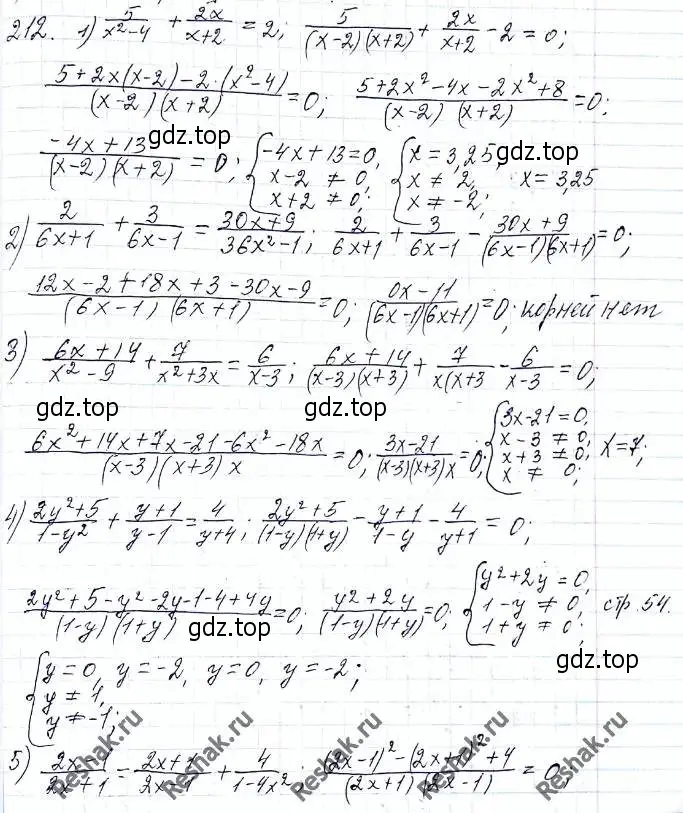 212. 1) 5/(x²-4) + 2x/(x+2) = 2; 5/((x-2)(x+2)) + 2x/(x+2) - 2 = 0;
(5+2x(x-2)-2·(x²-4))/((x-2)(x+2)) = 0; (5+2x²-4x-2x²+8)/((x-2)(x+2)) = 0;
gdz.top gdz.top
(-4x+13)/((x-2)(x+2)) = 0; { -4x+13=0, x-2≠0, x+2≠0; { x=3,25, x≠2, x≠-2; x=3,25
gdz.top gdz.top
2) 2/(6x+1) + 3/(6x-1) = (30x+9)/(36x²-1); 2/(6x+1) + 3/(6x-1) - (30x+9)/((6x-1)(6x+1)) = 0;
(12x-2+18x+3-30x-9)/((6x-1)(6x+1)) = 0; (0x-11)/((6x-1)(6x+1)) = 0; корней нет
3) (6x+14)/(x²-9) + 7/(x²+3x) = 6/(x-3); (6x+14)/((x-3)(x+3)) + 7/(x(x+3 - 6/(x-3 = 0;
gdz.top gdz.top
(6x²+14x+7x-21-6x²-18x)/((x-3)(x+3)x) = 0; (3x-21)/((x-3)(x+3)x) = 0; { 3x-21=0, x-3≠0, x+3≠0, x≠0; x=7;
4) (2y²+5)/(1-y²) + (y+1)/(y-1) = 4/(y+4); (2y²+5)/((1-y)(1+y)) - (y+1)/(1-y) - 4/(y+1) = 0;
(2y²+5-y²-2y-1-4+4y)/((1-y)(1+y)) = 0; (y²+2y)/((1-y)(1+y)) = 0; { y²+2y=0, 1-y≠0, 1+y≠0; стр. 54.
gdz.top
{ y=0, y=-2, y≠1, y≠-1; y=0, y=-2;
gdz.top
5) (2x-1)/(2x+1) = (2x+1)/(2x-1) + 4/(1-4x²); ((2x-1)²-(2x+1)²+4)/((2x+1)(2x-1)) = 0;
Reshak.ru Reshak.ru Reshak.ru Reshak.ru